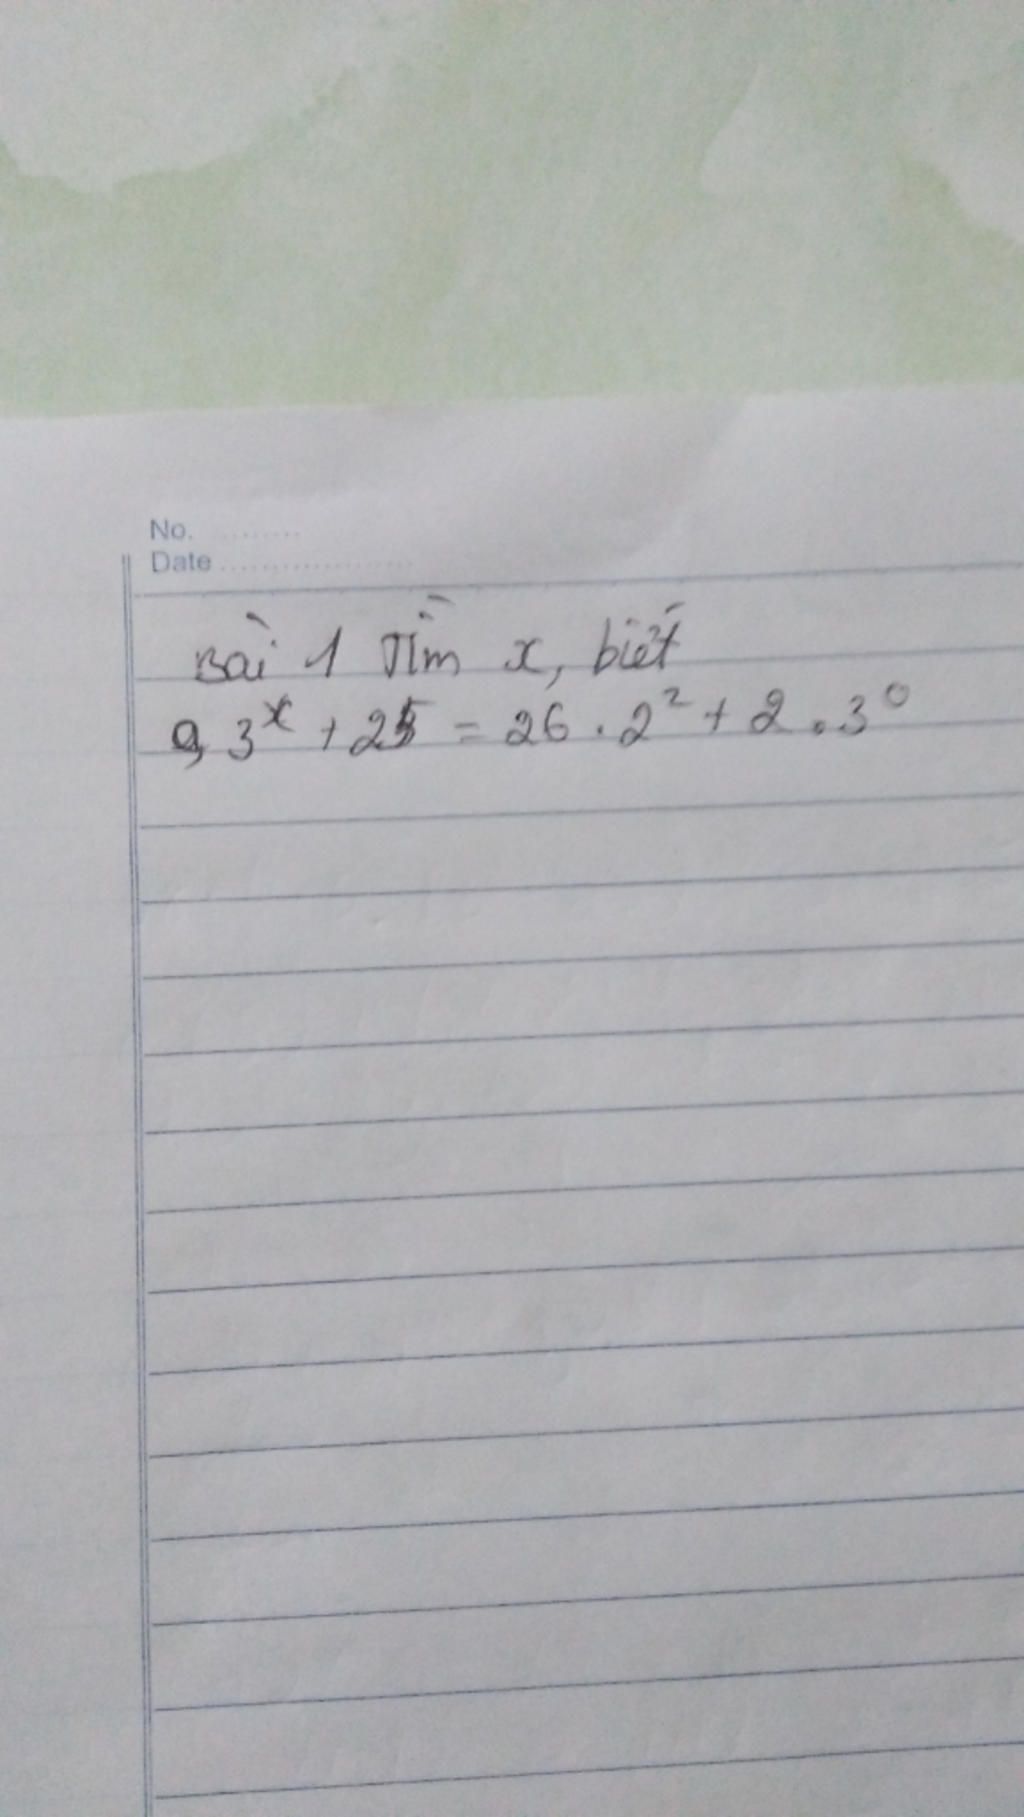 No. .........
Date ...................
Bài 1 Tìm x, biết
a, 3ˣ + 25 = 26 . 2² + 2 . 3⁰